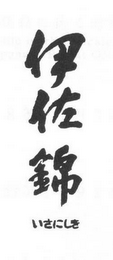 伊佐錦
いさにしき